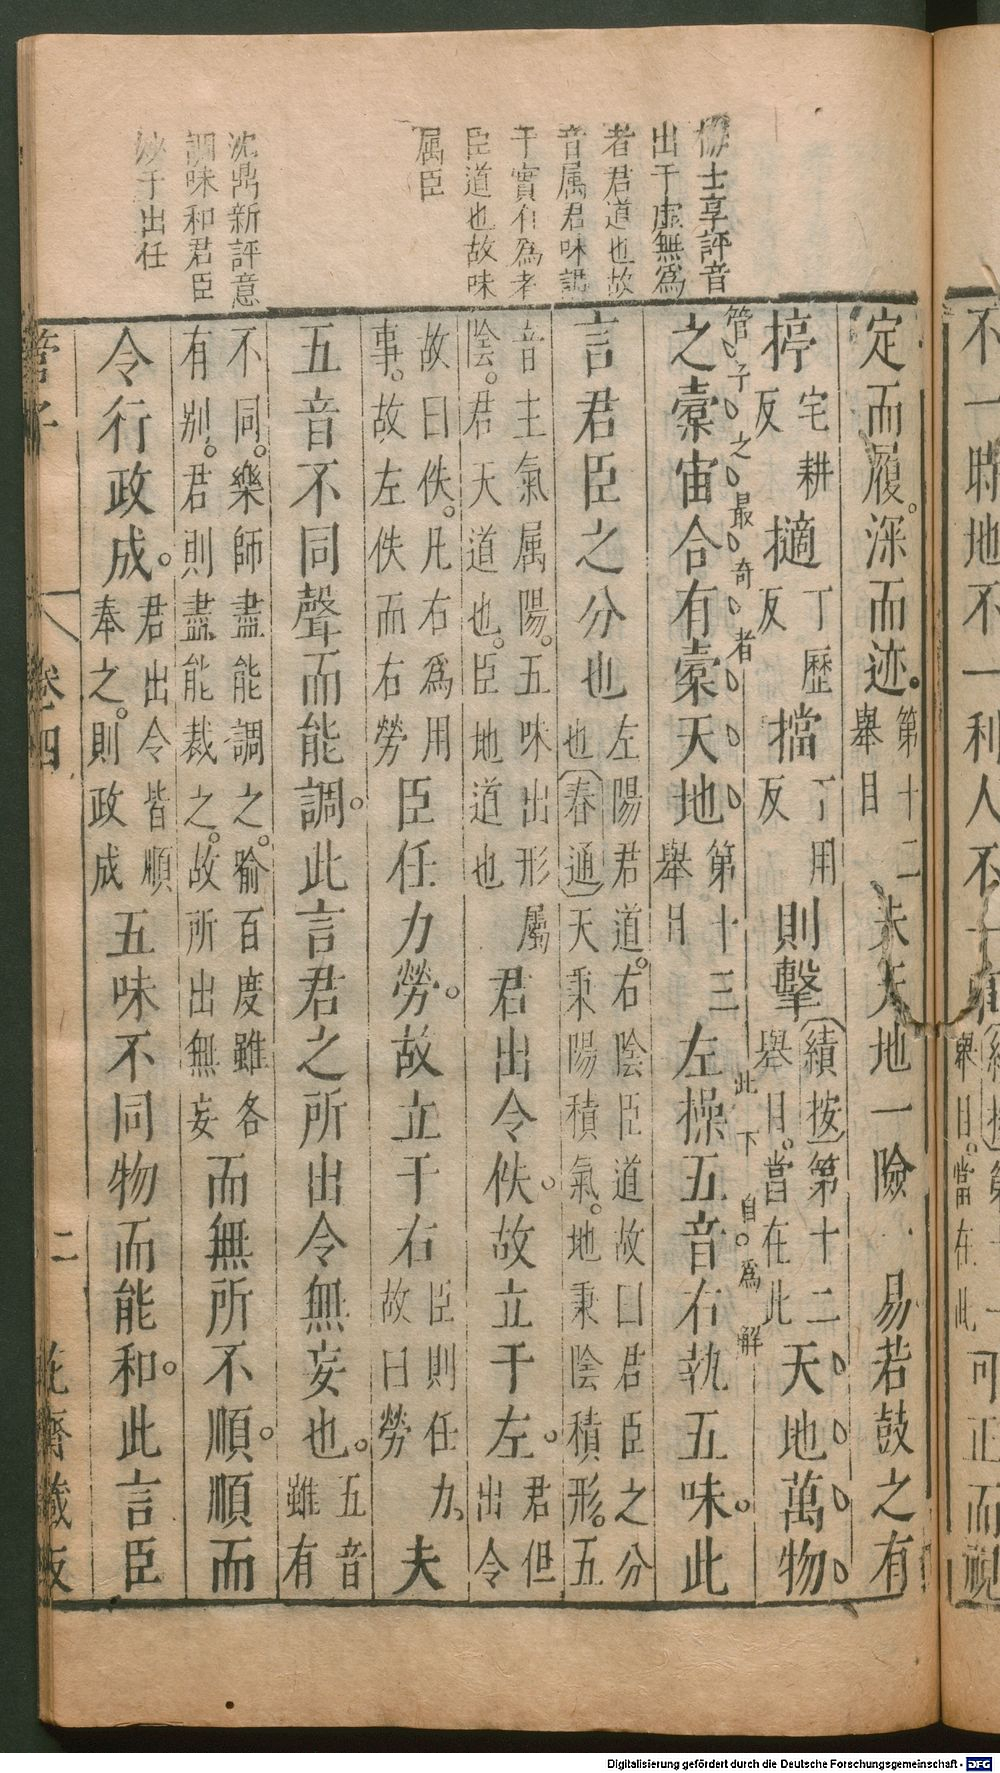 不一時地不一利人不一事
績按第十一
舉目當在此
可正而視
定而履深而迹
第十二
舉目
夫天地一險易若鼓之有
㨔宅耕反擿丁歷反擋丁用反則擊
績按第十二
舉目當在此
天地萬物
管子之最奇者
此下自爲解
之橐宙合有橐天地
第十三
舉目
左操五音右執五味此
言君臣之分也
左陽君道右陰臣道故曰君臣之分
也春通天秉陽積氣地秉陰積形五
音主氣属陽五味出形屬
陰君天道也臣地道也
君出令佚故立于左
君但
出令
故曰佚凡右爲用
事故左佚而右勞
臣任力勞故立于右
臣則任力
故曰勞
夫
五音不同聲而能調此言君之所出令無妄也
五音
雖有
不同樂師盡能調之喻百度雖各
有别君則盡能裁之故所出無妄
而無所不順順而
令行政成
君出令皆順
奉之則政成
五味不同物而能和此言臣
管子
卷四
二
花齋藏板
士享評音
出于虛無爲
者君道也故
音属君味調
于實有爲者
臣道也故味
属臣
沈鼎新評意
調味和君臣
妙于出任
Digitalisierung gefördert durch die Deutsche Forschungsgemeinschaft - DFG